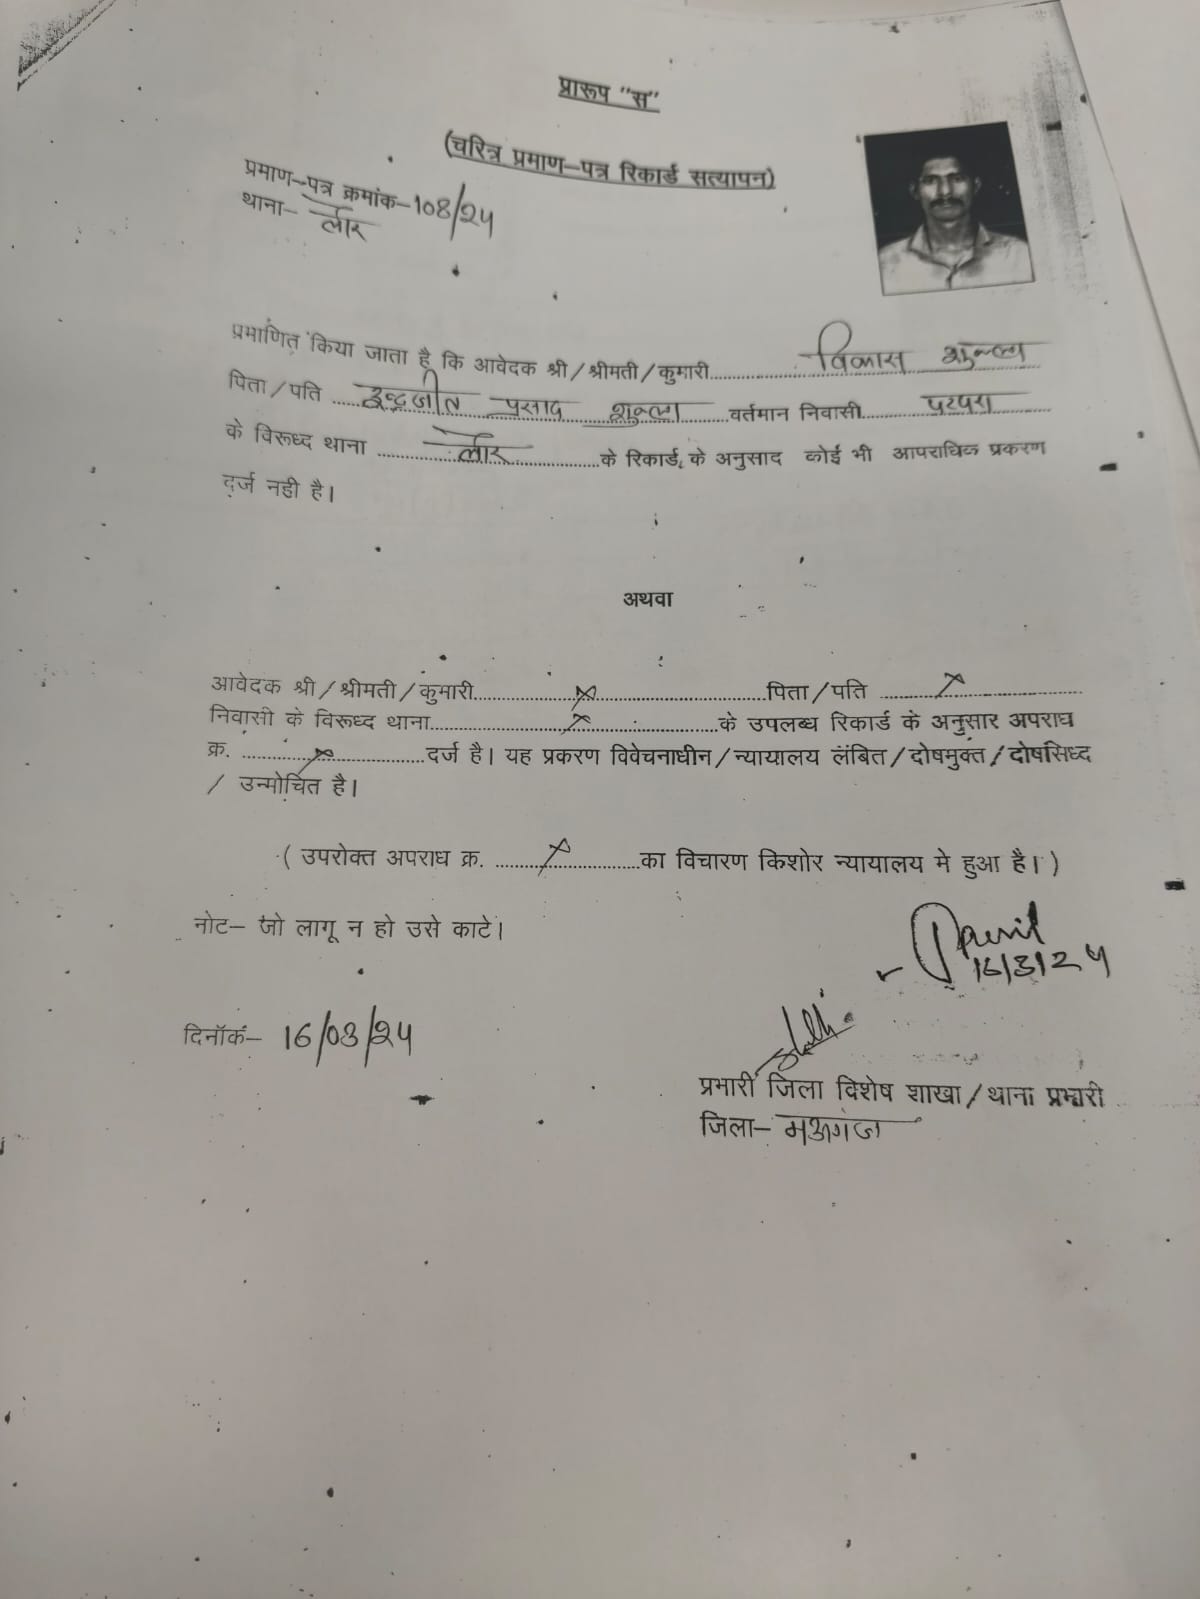 प्रारूप "स"
(चरित्र प्रमाण–पत्र रिकार्ड सत्यापन)
प्रमाण–पत्र क्रमांक–108/24
थाना– लौर
प्रमाणित किया जाता है कि आवेदक श्री/श्रीमती/कुमारी विकास शुक्ला
पिता/पति इन्द्रजीत प्रसाद शुक्ला वर्तमान निवासी
के विरूध्द थाना लौर के रिकार्ड के अनुसाद कोई भी आपराधिक प्रकरण
दर्ज नही है।
अथवा
आवेदक श्री/श्रीमती/कुमारी x पिता/पति x
निवासी के विरूध्द थाना x के उपलब्ध रिकार्ड के अनुसार अपराध
क्र. x दर्ज है। यह प्रकरण विवेचनाधीन/न्यायालय लंबित/दोषमुक्त/दोषसिध्द
/ उन्मोचित है।
( उपरोक्त अपराध क्र. x का विचारण किशोर न्यायालय मे हुआ है। )
नोट– जो लागू न हो उसे काटे।
16/3/24
दिनॉक– 16/03/24
प्रभारी जिला विशेष शाखा/थाना प्रभारी
जिला– मऊगंज